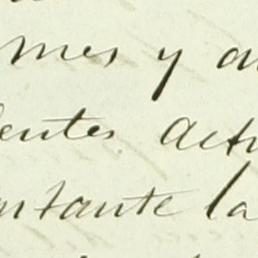 mes y a
entes act
rtante la